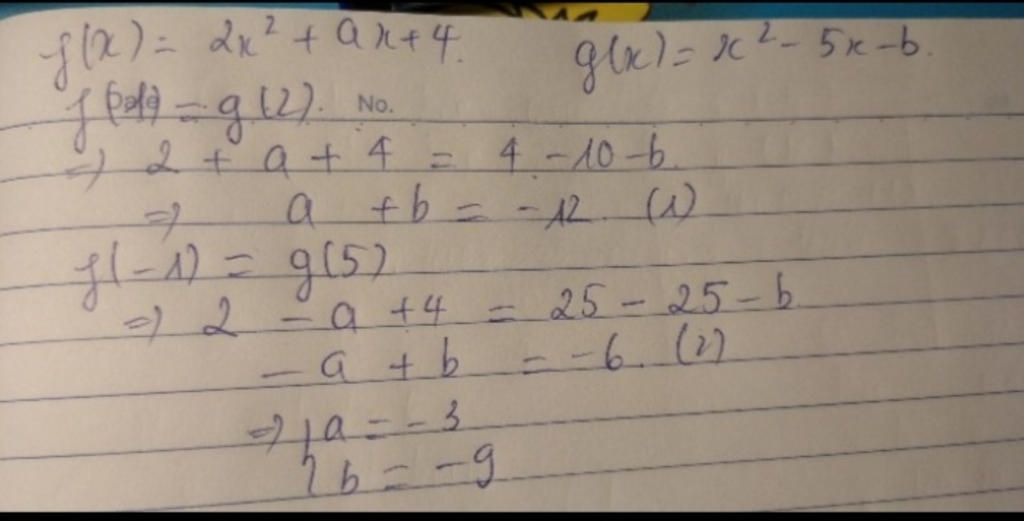 f(x) = 2x² + ax + 4. g(x) = x² - 5x - b.
f = g(2). No.
=> 2 + a + 4 = 4 - 10 - b
=> a + b = -12. (1)
f(-1) = g(5)
=> 2 - a + 4 = 25 - 25 - b
- a + b = -6. (2)
=> { a = -3
{ b = -9